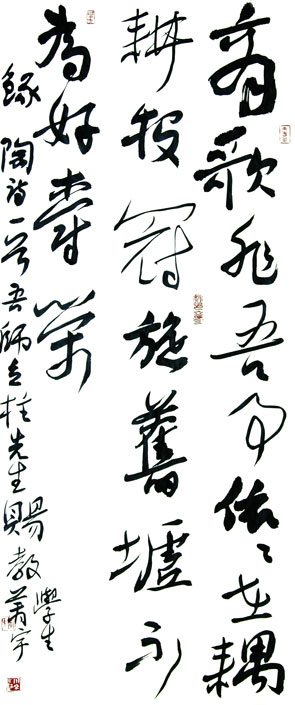 商歌非吾事依依在耦
耕投冠旋舊墟不
為好爵縈
錄陶詩一首吾師立柱先生賜教
學生
蕭宇